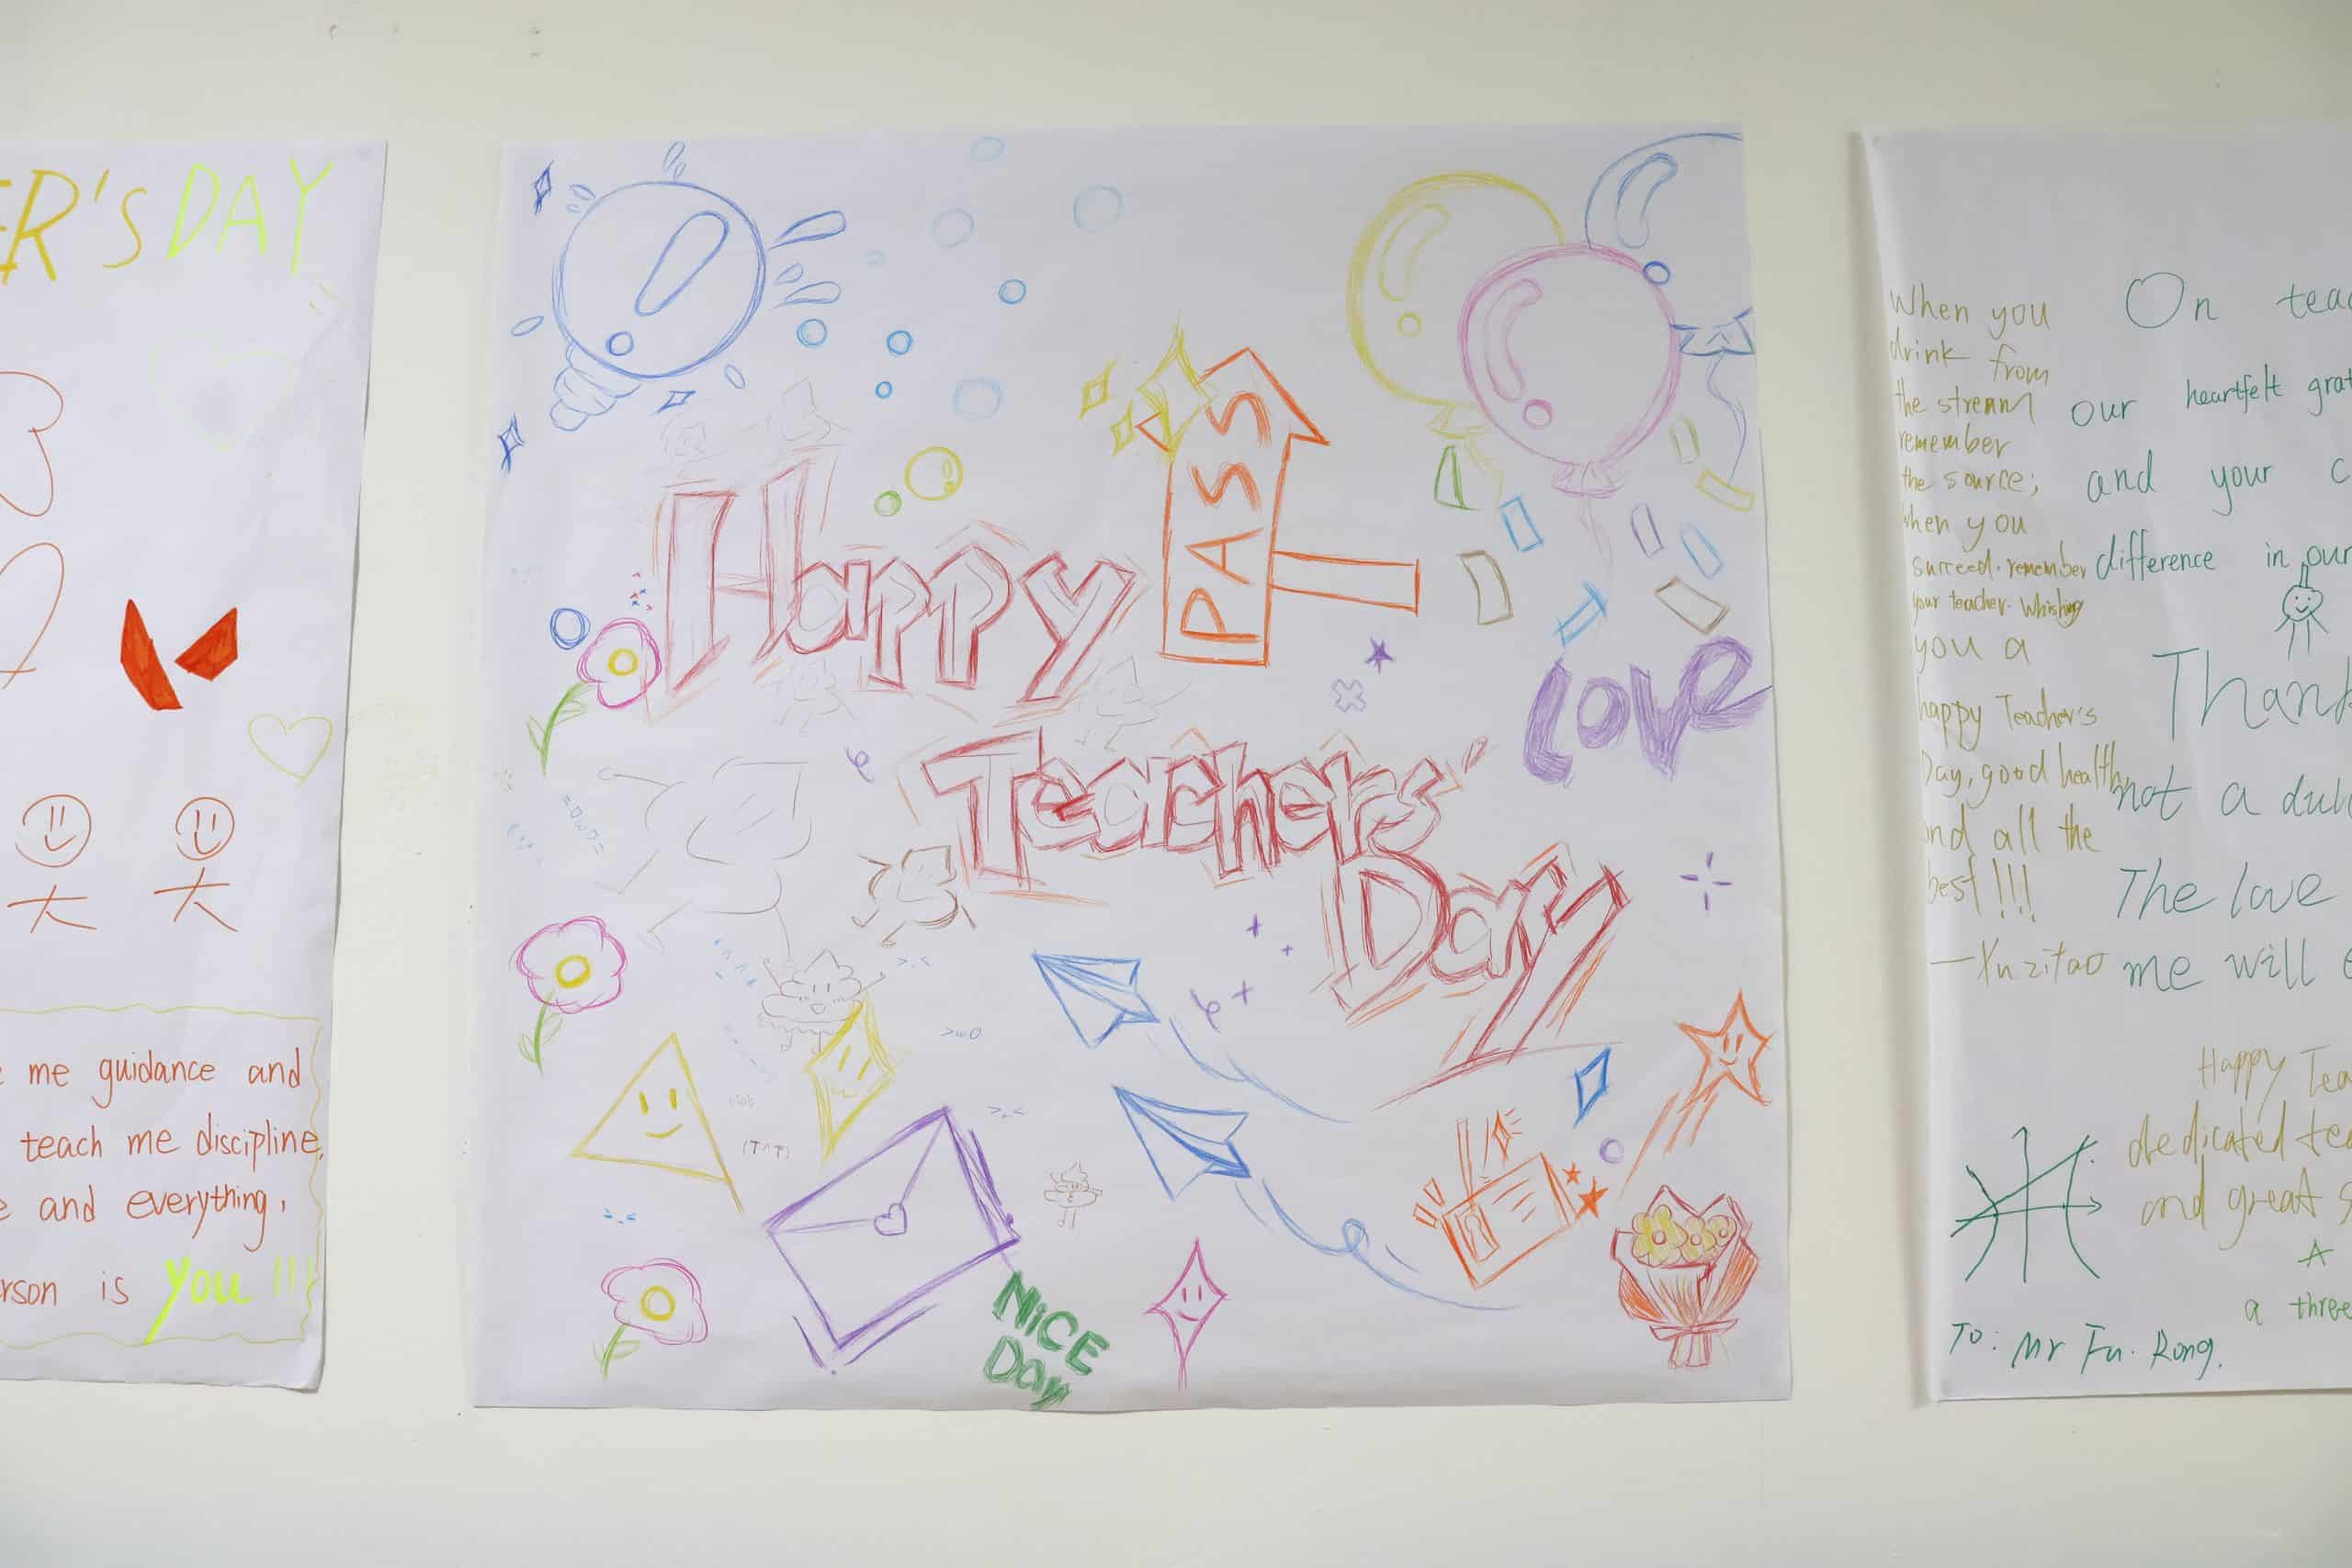 ER'S DAY
me guidance and
teach me discipline,
and everything,
rson is you!!!
PASS
Happy
LOVE
Teachers'
Day
=OwO=
>.<
>w0
>.<
(T^T)
NiCE
Day
When you
drink from
the stream
remember
the source;
when you
succeed. remember
your teacher. Whishing
you a
happy Teacher's
Day, good health
and all the
best!!!
—Xu zitao
On teac
our heartfelt grat
and your c
difference in our
Thank
not a dul
The love
me will e
Happy Tea
dedicated tea
and great s
A
a three
To: Mr Fu. Rong.